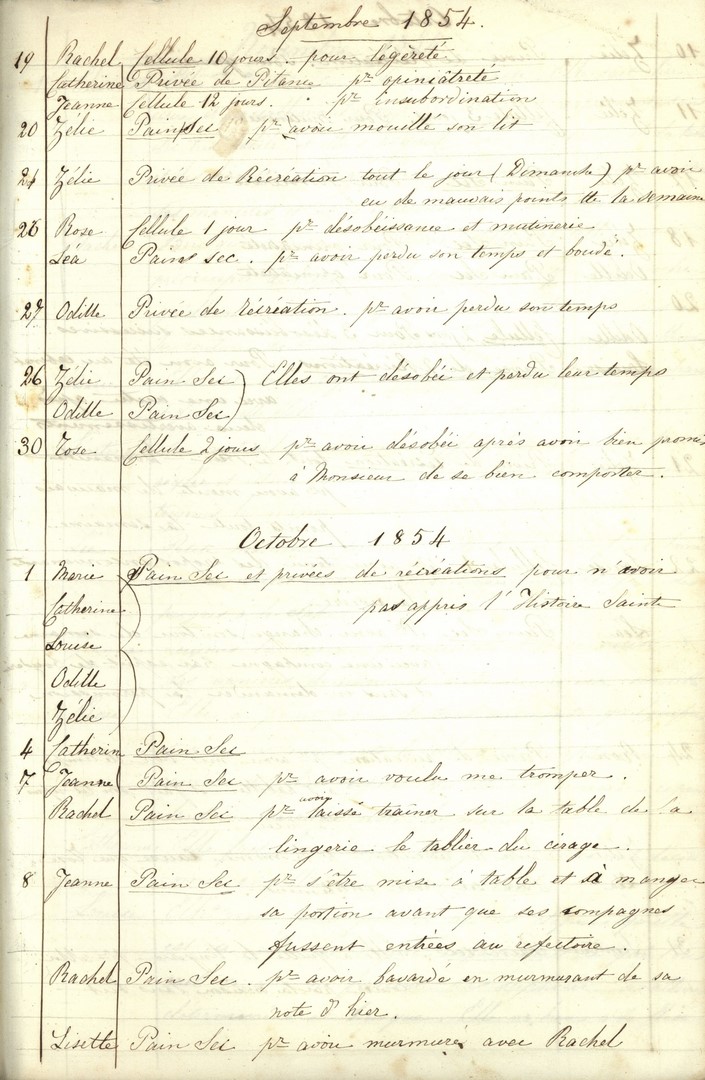 Septembre 1854.
19 Rachel Cellule 10 jours. pour légèreté
Catherine Privée de Pitance pr opiniâtreté
Jeanne Cellule 12 jours. pr insubordination
20 Zélie Pain Sec pr avoir mouillé son lit
24 Zélie Privée de Récréation tout le jour (Dimanche) pr avoir
eu de mauvais points de la semaine
Rose Cellule 1 jour pr désobéissance et mutinerie
Léa Pain sec. pr avoir perdu son temps et boudé.
Oditte Privée de récréation. pr avoir perdu son temps
26 Zélie Pain Sec) Elles ont désobéi et perdu leur temps
Oditte Pain Sec)
30 Rose Cellule 2 jours pr avoir désobéi après avoir bien promis
à Monsieur de se bien comporter.
Octobre 1854
1 Marie Pain Sec et privées de récréations pour n'avoir
Catherine pas appris l'Histoire Sainte
Louise
Oditte
Zélie
4 Catherin Pain Sec
7 Jeanne Pain Sec pr avoir voulu me tromper.
Rachel Pain Sec pr avoir laissé traîner sur la table de la
lingerie le tablier du cirage.
8 Jeanne Pain Sec pr s'être mise à table et à manger
sa portion avant que ses compagnes
fussent entrées au refectoire.
Rachel Pain Sec. pr avoir bavardé en murmurant de sa
note d'hier.
Lisette Pain Sec pr avoir murmuré avec Rachel